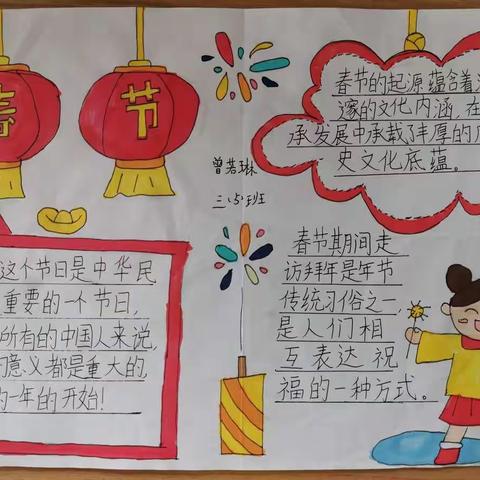 春
节
曾若琳
三、(5)班
春节的起源蕴含着
邃的文化内涵,在
承发展中承载了丰厚的
史文化底蕴。
这个节日是中华民
重要的一个节日,
所有的中国人来说,
意义都是重大的,
一年的开始!
春节期间走
访拜年是年节
传统习俗之一,
是人们相
互表达祝
福的一种方式。